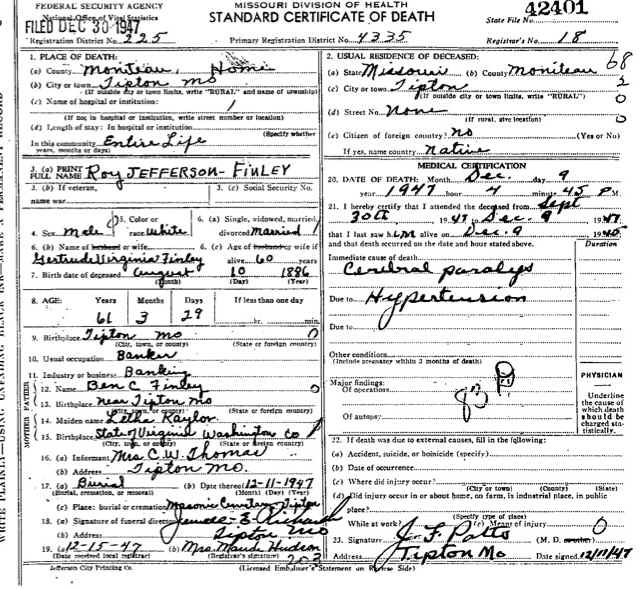 FEDERAL SECURITY AGENCY
National Office of Vital Statistics
FILED DEC 30 1947
Registration District No. 225
MISSOURI DIVISION OF HEALTH
STANDARD CERTIFICATE OF DEATH
Primary Registration District No. 4335
42401
State File No.
Registrar's No. 18
1. PLACE OF DEATH:
(a) County Moniteau, Home
(b) City or town Tipton Mo
(If outside city or town limits, write "RURAL" and name of township)
(c) Name of hospital or institution:
(If not in hospital or institution, write street number or location)
(d) Length of stay: In hospital or institution
(Specify whether
In this community Entire Life
years, months or days)
2. USUAL RESIDENCE OF DECEASED:
(a) State Missouri (b) County Moniteau 68
(c) City or town Tipton 2
(If outside city or town limits, write "RURAL") 0
(d) Street No. None
(If rural, give location) 0
(e) Citizen of foreign country? no (Yes or No)
If yes, name country Native
3. (a) PRINT FULL NAME Roy JEFFERSON-FINLEY
3. (b) If veteran, name war
3. (c) Social Security No.
4. Sex Male
5. Color or race White
6. (a) Single, widowed, married, divorced Married
6. (b) Name of husband or wife
Gertrude Virginia Finley
6. (c) Age of husband or wife if alive 60 years
7. Birth date of deceased August 10 1886
(Month) (Day) (Year)
8. AGE: Years Months Days If less than one day
61 3 29 hr. min.
9. Birthplace Tipton Mo 0
(City, town, or county) (State or foreign country)
10. Usual occupation Banker
11. Industry or business Banking
FATHER
12. Name Ben C. Finley 0
13. Birthplace near Tipton Mo
(City, town, or county) (State or foreign country)
MOTHER
14. Maiden name Letha Kaylor
15. Birthplace State of Virginia Washington Co
(City, town, or county) (State or foreign country)
16. (a) Informant Mrs C. W. Thomas
(b) Address Tipton Mo.
17. (a) Burial (b) Date thereof 12-11-1947
(Burial, cremation, or removal) (Month) (Day) (Year)
(c) Place: burial or cremation Masonic Cemetery Tipton
18. (a) Signature of funeral director
(b) Address Tipton Mo
19. (a) 12-15-47 (b) Mrs. Maude Hudson
(Date received local registrar) (Registrar's signature)
203
MEDICAL CERTIFICATION
20. DATE OF DEATH: Month Dec. day 9
year 1947 hour 4 minute 45 P M.
21. I hereby certify that I attended the deceased from Sept
30th 1947 to Dec. 9 1947
that I last saw him alive on Dec. 9
and that death occurred on the date and hour stated above.
Duration
Immediate cause of death
Cerebral paralys
Due to Hypertension
Due to
Other conditions
(Include pregnancy within 3 months of death)
Major findings:
Of operations
83
Of autopsy
PHYSICIAN
Underline the cause of which death should be charged statistically.
22. If death was due to external causes, fill in the following:
(a) Accident, suicide, or homicide (specify)
(b) Date of occurrence
(c) Where did injury occur?
(City or town) (County) (State)
(d) Did injury occur in or about home, on farm, in industrial place, in public place?
(Specify type of place)
While at work? (e) Means of injury 0
23. Signature J. F. Potts (M. D. or other)
Address Tipton Mo Date signed 12/11/47
Jefferson City Printing Co.
(Licensed Embalmer's Statement on Reverse Side)